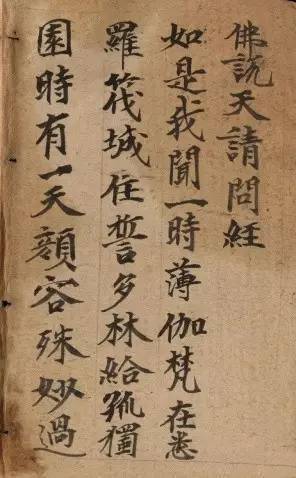 佛説天請問經
如是我聞一時薄伽梵在
羅筏城住誓多林給孤獨
園時有一天顏容殊妙過